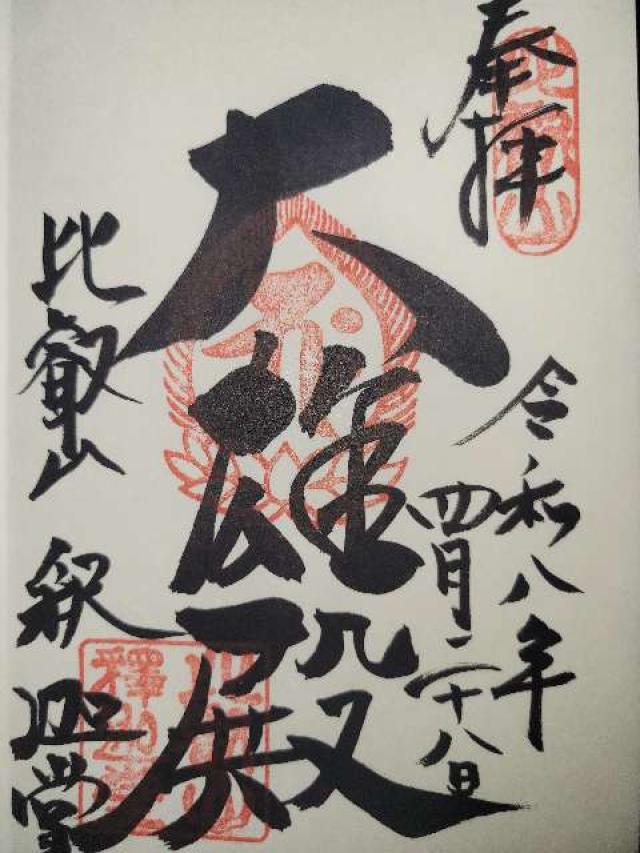 奉拝
令和八年
四月二十八日
大雄殿
比叡山
釈迦堂